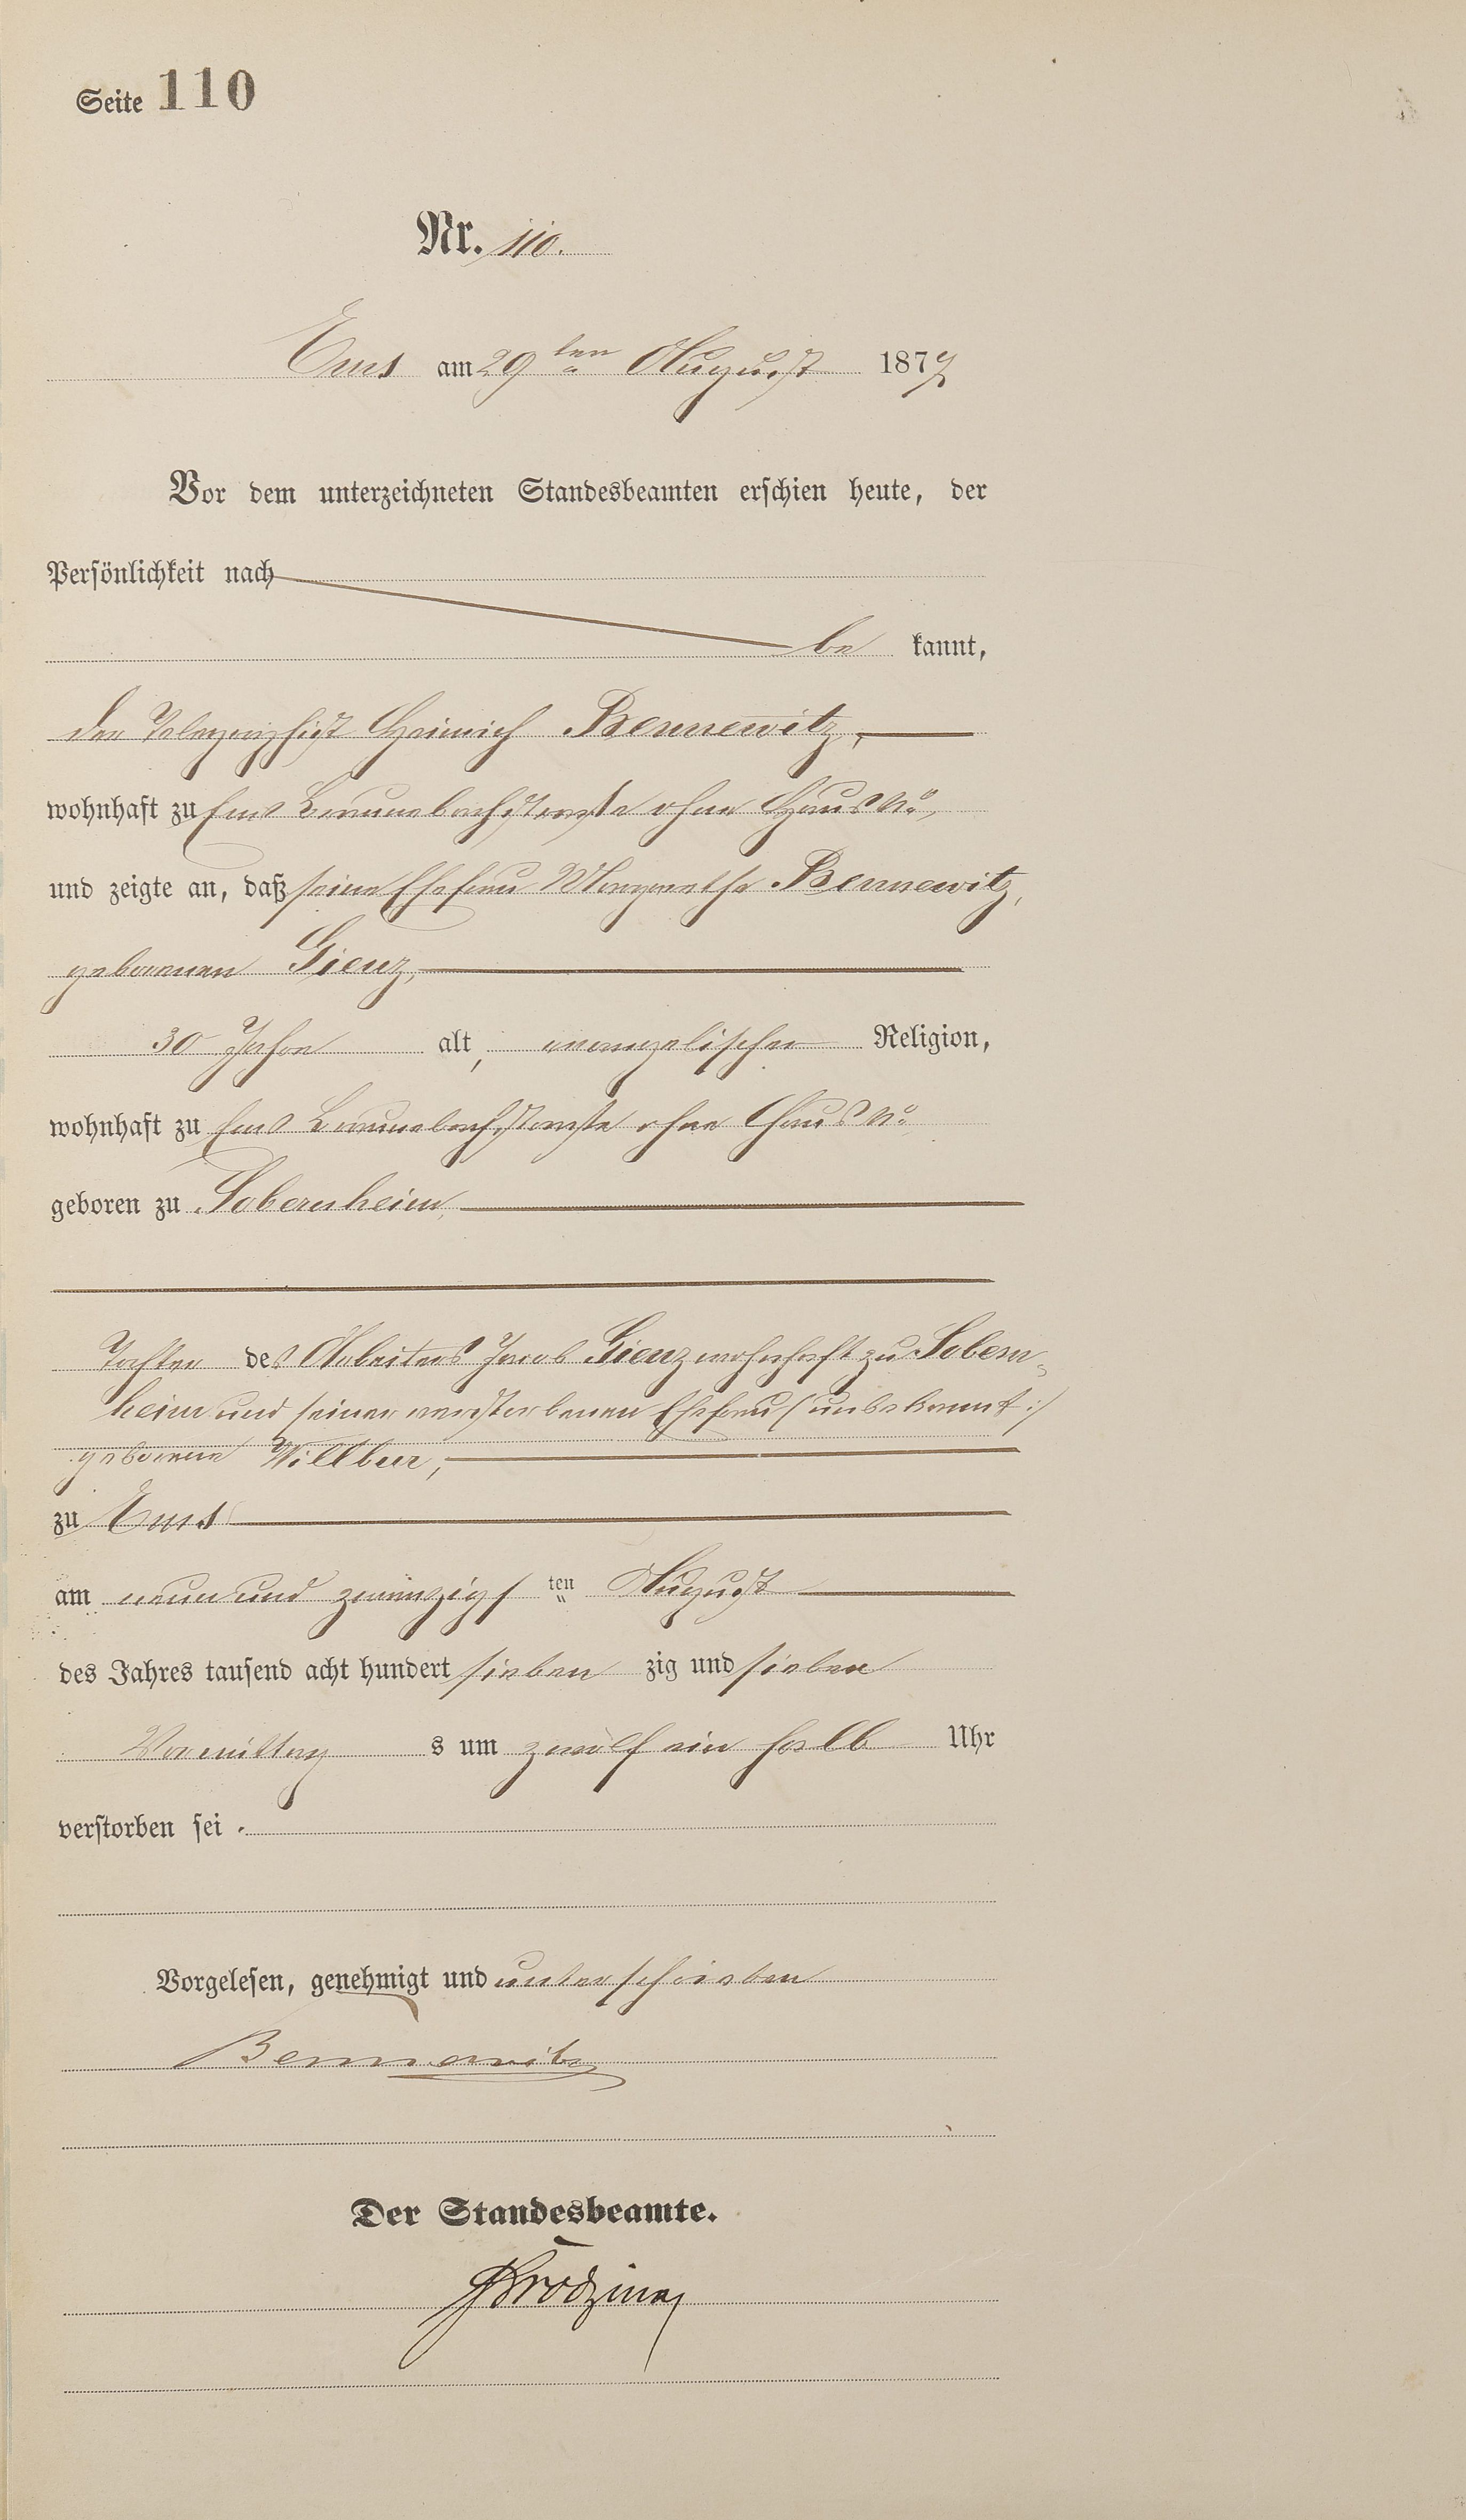 Seite 110
Nr. 110.
Ems am 29ten August 1877
Vor dem unterzeichneten Standesbeamten erschien heute, der
Persönlichkeit nach
be kannt,
der Telegraphist Heinrich Bennewitz,
wohnhaft zu Ems Braunebachstraße ohne Haus No
und zeigte an, daß seine Ehefrau Margarethe Bennewitz,
geborenen Gienz,
30 Jahre alt, evangelischer Religion,
wohnhaft zu Ems Braunebachstraße ohne Haus No
geboren zu Sobernheim,
Tochter des Arbeiters Jacob Gienz wohnhaft zu Sobern-
heim und seiner verstorbenen Ehefrau (unbekannt:)
geborene Willbur,
zu Ems
am neun und zwanzigsten August
des Jahres tausend acht hundert sieben zig und sieben
Vormittag s um zwölf ein halb Uhr
verstorben sei.
Vorgelesen, genehmigt und unterschrieben
Bennewitz
Der Standesbeamte.